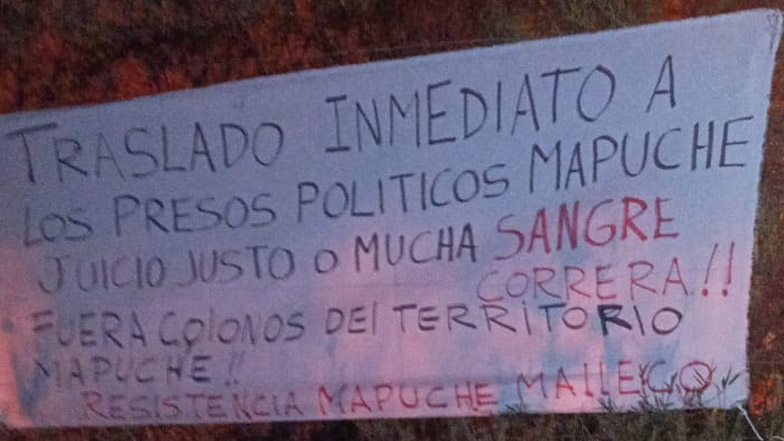 TRASLADO INMEDIATO A
LOS PRESOS POLITICOS MAPUCHE
JUICIO JUSTO O MUCHA SANGRE
CORRERA!!
FUERA COLONOS DEL TERRITORIO
MAPUCHE!!
RESISTENCIA MAPUCHE MALLECO